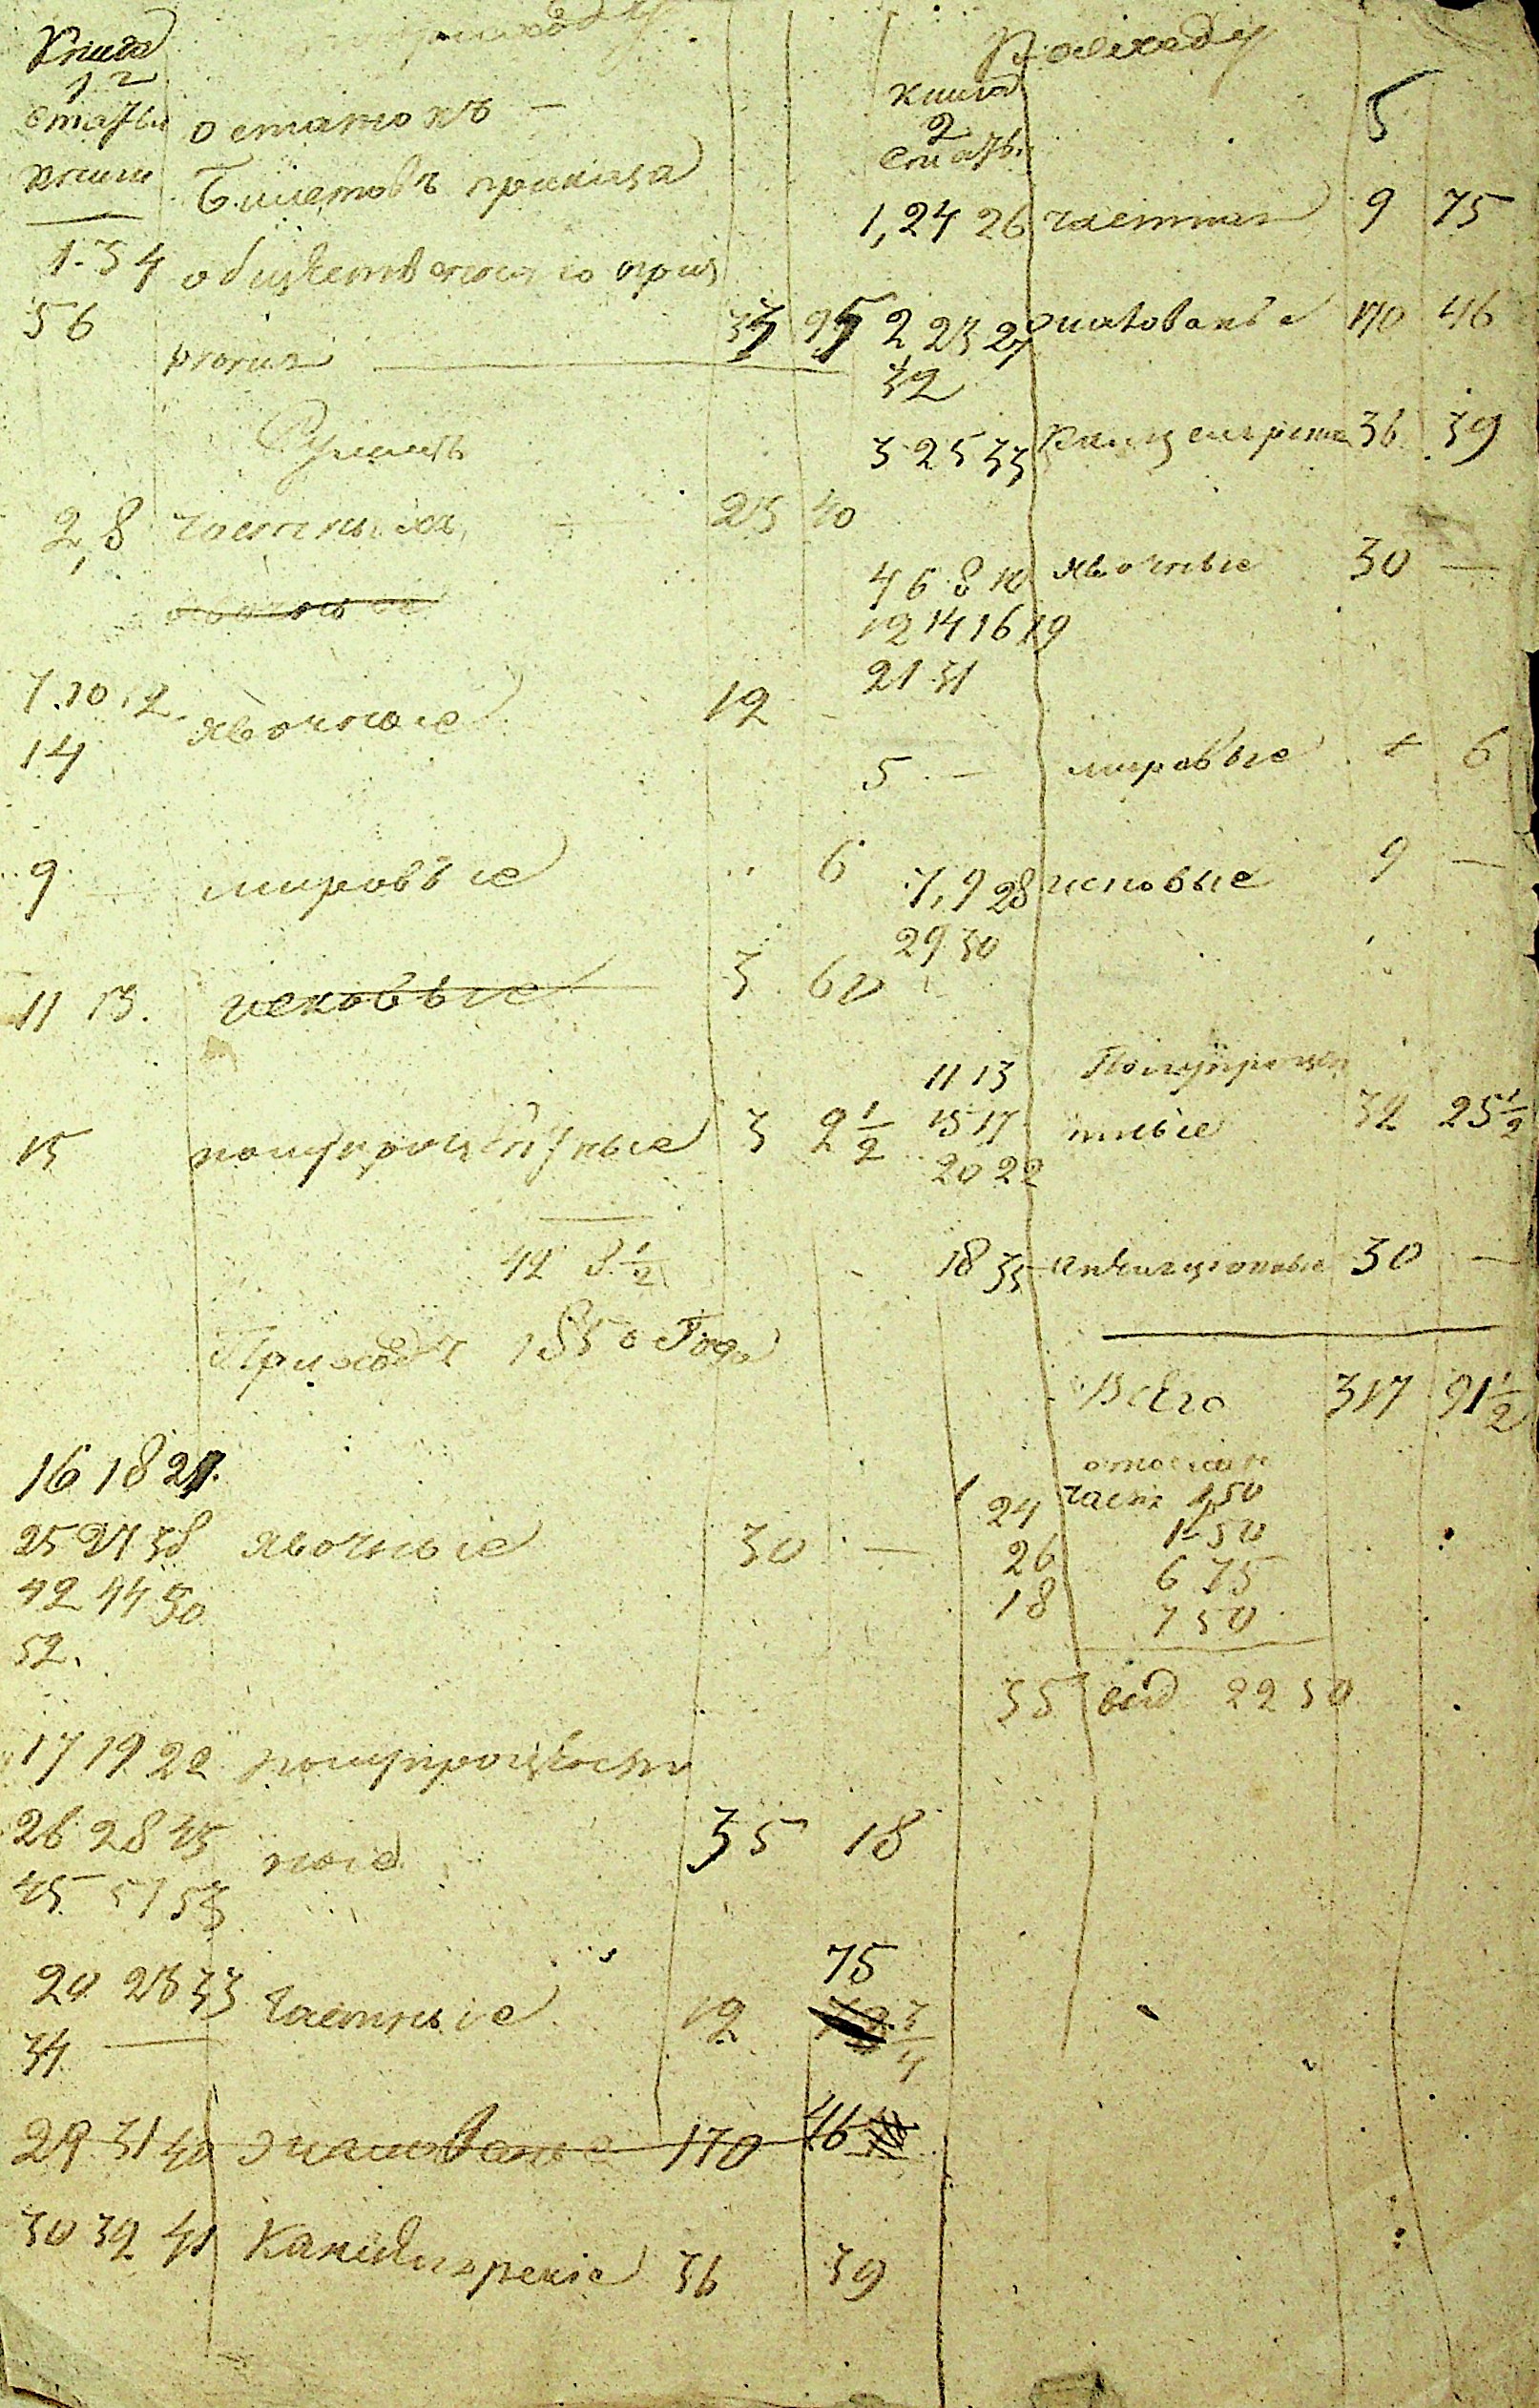 приходу
Книга
1 2
статьи
книги
остатокъ —
Билетовъ приказа
1. 3 4 общественнаго приз
5 6
рѣнія
37 95
Суммъ
2, 8 частныхъ 23 40
7. 10 12 явочные 12 -
14
9 мировые .. 6
11 13. исковые 3 60
15 полупроцентные 3 2 1/2
42 8 1/2
Приходъ 1850 Года
16 18 21.
25 27 38 явочные 30 —
42 44 50
52.
17 19 22 полупроцентн
26 28 45 ные 35 18
45 51 53
75
20 23 33 частные 12
34 —
29 31 40 жалованье 170 46
30 32 41 Канцелярскіе 36 39
Расходу
Книга
2
статьи
5
1, 24 26 частныя 9 75
2 23 27 жалованье 170 46
32
3 25 33 Канцелярскіе 36 39
4 6 8 10 явочные 30 —
12 14 16 19
21 31
5 — мировые + 6
7, 9 28 исковые 9 —
29 30
11 13 Полупроцен
15 17 тные 32 25 1/2
20 22
18 35 аукціонные 30 —
Всего 317 91 1/2
24 частн 1 50
1 50
26 6 75
18 7 50
35 22 50